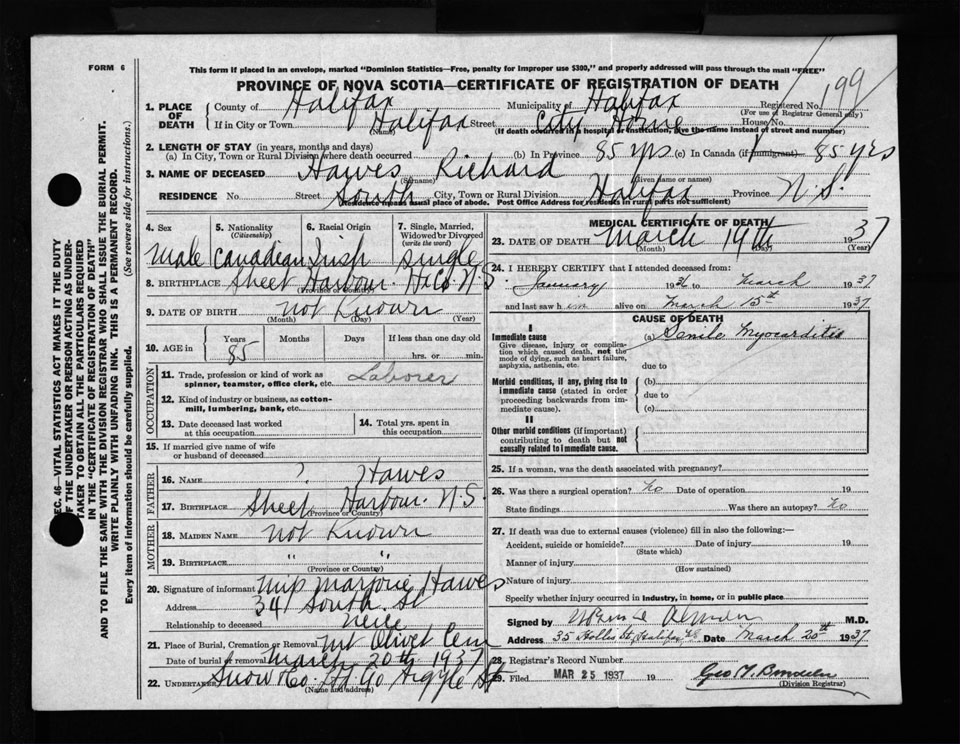 FORM 6
This form if placed in an envelope, marked "Dominion Statistics—Free, penalty for improper use $300," and properly addressed will pass through the mail "FREE"
PROVINCE OF NOVA SCOTIA—CERTIFICATE OF REGISTRATION OF DEATH
199
1. PLACE OF DEATH
County of Halifax Municipality of Halifax Registered No.
(For use of Registrar General only)
If in City or Town Halifax Street City Home House No.
(Name) (If death occurred in a hospital or institution, give the name instead of street and number)
2. LENGTH OF STAY (in years, months and days)
(a) In City, Town or Rural Division where death occurred (b) In Province 85 yrs (c) In Canada (if immigrant) 85 yrs
3. NAME OF DECEASED Hawes Richard
(Surname) (Given name or names)
RESIDENCE No. Street South City, Town or Rural Division Halifax Province N.S.
(Residence means usual place of abode. Post Office Address for residents in rural parts not sufficient)
4. Sex
Male
5. Nationality
(Citizenship)
Canadian
6. Racial Origin
Irish
7. Single, Married, Widowed or Divorced
(write the word)
Single
8. BIRTHPLACE Sheet Harbour. Hx Co. N.S.
(Province or Country)
9. DATE OF BIRTH not Known
(Month) (Day) (Year)
10. AGE in
Years Months Days If less than one day old
85 hrs. or min.
OCCUPATION
11. Trade, profession or kind of work as spinner, teamster, office clerk, etc. Laborer
12. Kind of industry or business, as cotton-mill, lumbering, bank, etc.
13. Date deceased last worked at this occupation
14. Total yrs. spent in this occupation
15. If married give name of wife or husband of deceased
FATHER
16. NAME ? Hawes
17. BIRTHPLACE Sheet Harbour. N.S.
(Province or Country)
MOTHER
18. MAIDEN NAME not Known
19. BIRTHPLACE " "
(Province or Country)
20. Signature of informant Miss Marjorie Hawes
Address 341 South. St
Relationship to deceased neice
21. Place of Burial, Cremation or Removal Mt Olivet Cem
Date of burial or removal March 20th 1937
22. UNDERTAKER Snow & Co. Ltd 90 Argyle St
(Name and address)
MEDICAL CERTIFICATE OF DEATH
23. DATE OF DEATH March 19th 1937
(Month) (Day) (Year)
24. I HEREBY CERTIFY that I attended deceased from:
January 1936 to March 1937
and last saw him alive on March 15th 1937
CAUSE OF DEATH
I
Immediate cause
Give disease, injury or complication which caused death, not the mode of dying, such as heart failure, asphyxia, asthenia, etc.
(a) Senile Myocarditis
due to
Morbid conditions, if any, giving rise to immediate cause (stated in order proceeding backwards from immediate cause).
(b)
due to
(c)
II
Other morbid conditions (if important) contributing to death but not causally related to immediate cause.
25. If a woman, was the death associated with pregnancy?
26. Was there a surgical operation? No Date of operation 19
State findings Was there an autopsy? No
27. If death was due to external causes (violence) fill in also the following:—
Accident, suicide or homicide? Date of injury 19
(State which)
Manner of injury
(How sustained)
Nature of injury
Specify whether injury occurred in industry, in home, or in public place
Signed by M.D.
Address 35 Hollis St, Halifax Date March 20th 1937
28. Registrar's Record Number
29. Filed MAR 25 1937 19
(Division Registrar)
SEC. 46—VITAL STATISTICS ACT MAKES IT THE DUTY OF THE UNDERTAKER OR PERSON ACTING AS UNDERTAKER TO OBTAIN ALL THE PARTICULARS REQUIRED IN THE "CERTIFICATE OF REGISTRATION OF DEATH"
AND TO FILE THE SAME WITH THE DIVISION REGISTRAR WHO SHALL ISSUE THE BURIAL PERMIT.
WRITE PLAINLY WITH UNFADING INK. THIS IS A PERMANENT RECORD.
Every item of information should be carefully supplied. (See reverse side for instructions.)